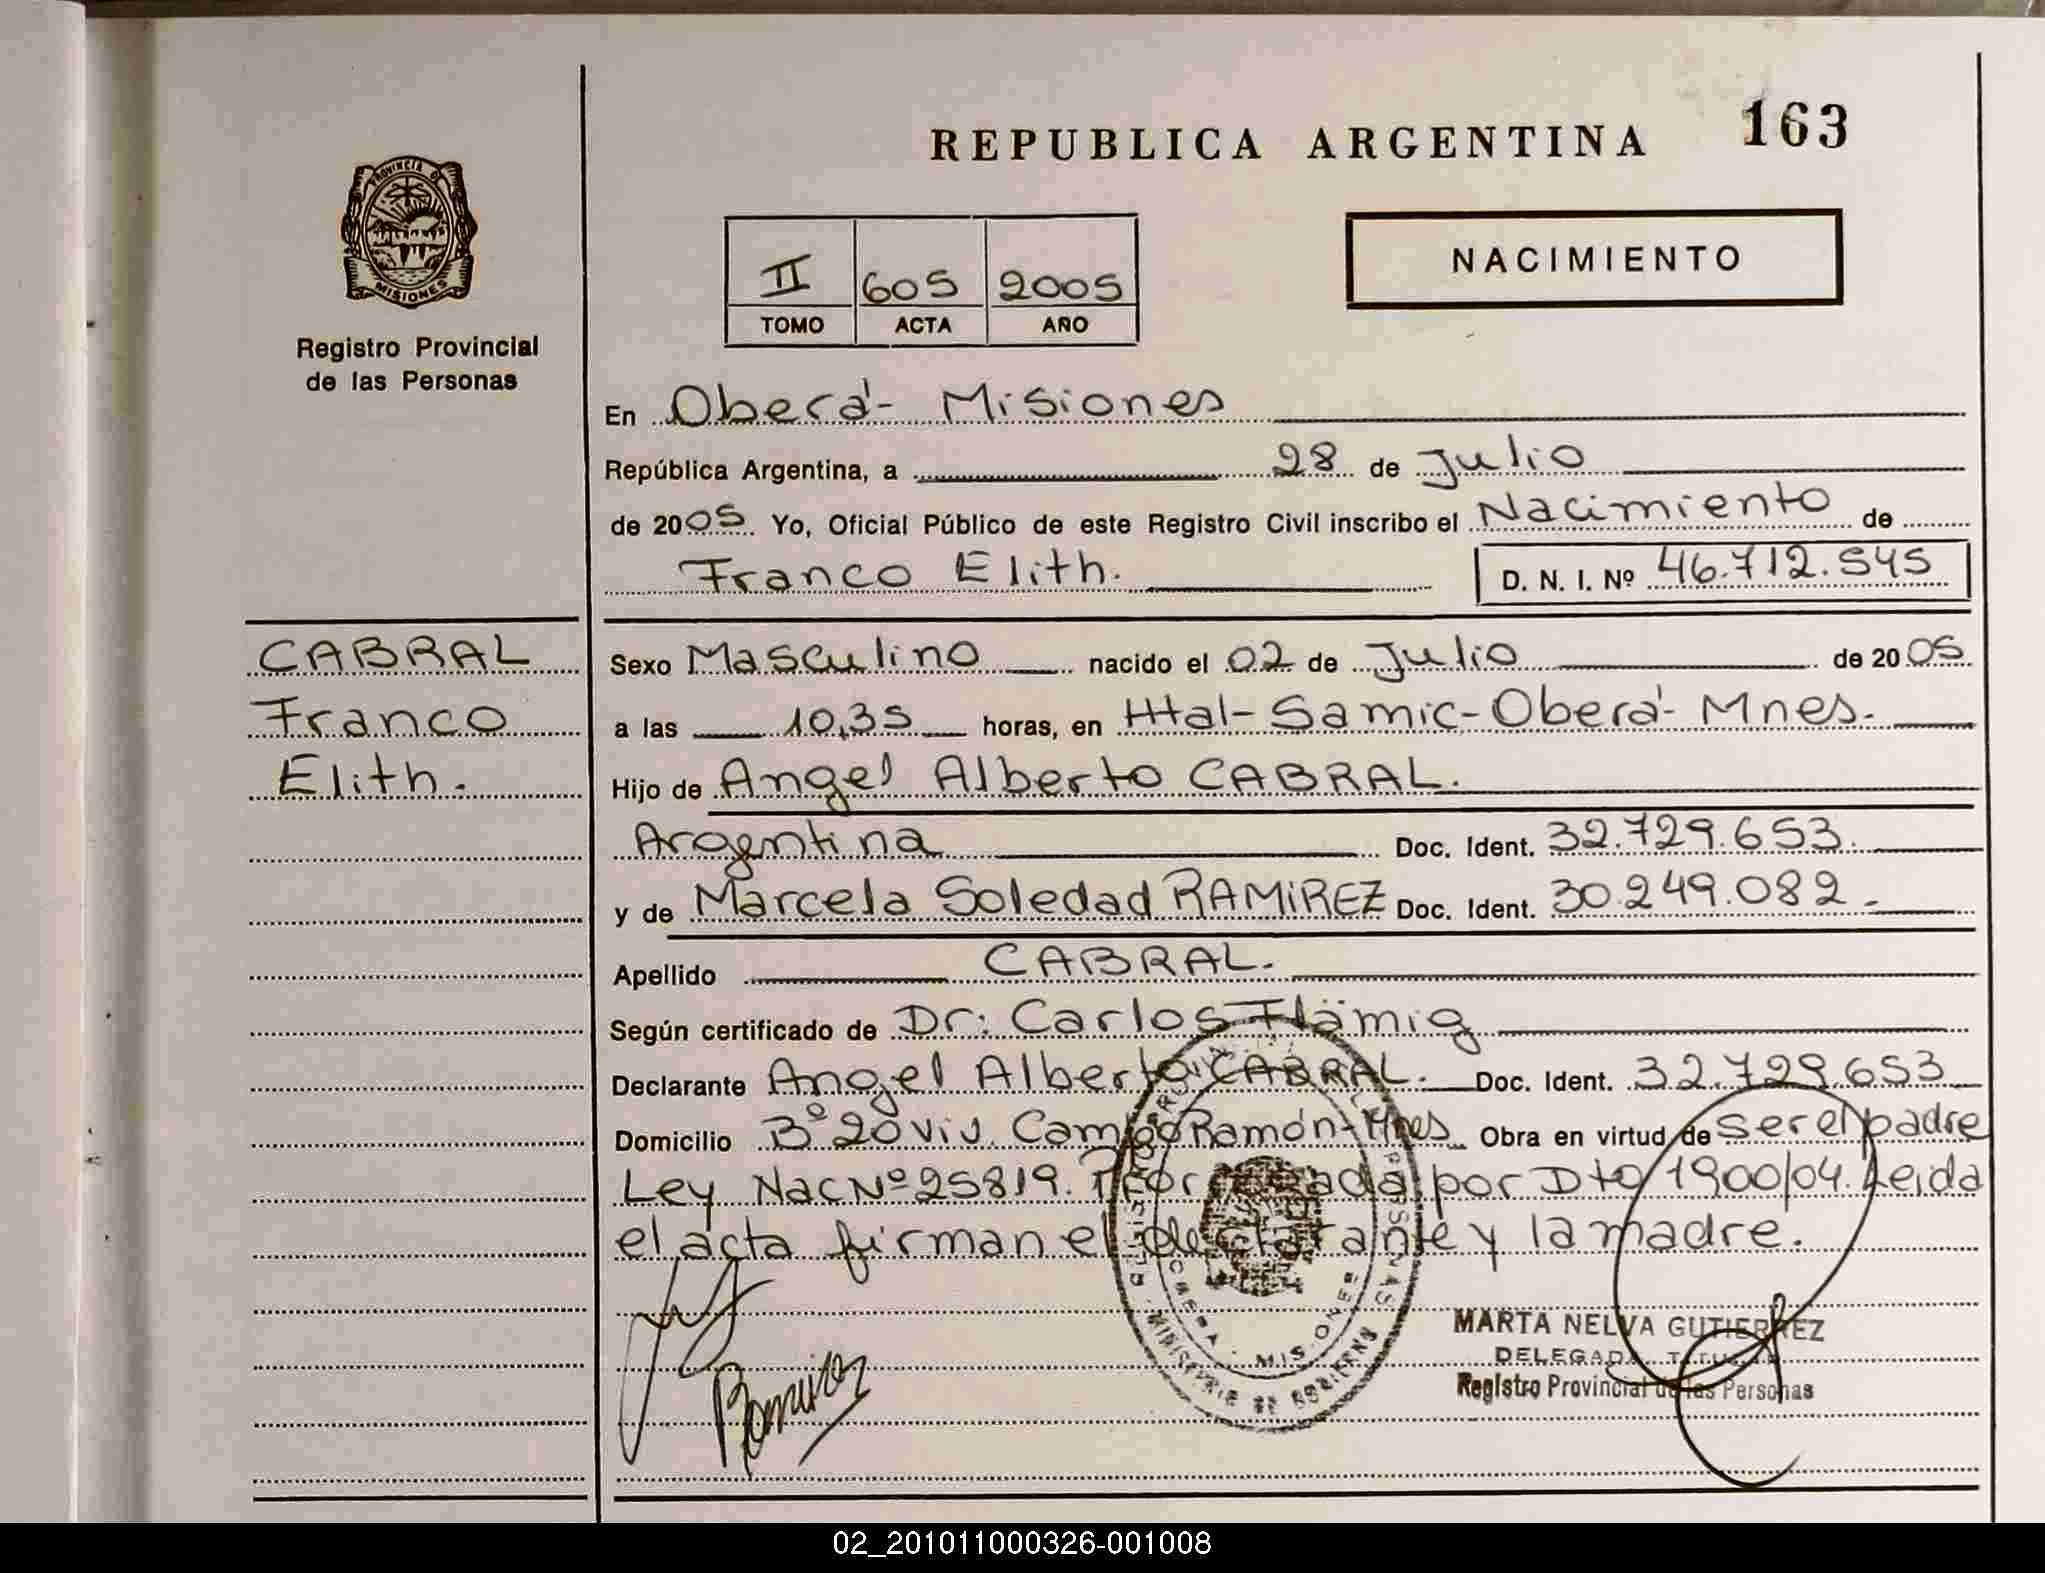 REPUBLICA ARGENTINA 163
PROVINCIA DE
MISIONES
Registro Provincial
de las Personas
II 605 2005
TOMO ACTA AÑO
NACIMIENTO
En Oberá - Misiones
República Argentina, a 28 de Julio
de 2005. Yo, Oficial Público de este Registro Civil inscribo el Nacimiento de
Franco Elith. D. N. I. Nº 46.712.545
CABRAL
Franco
Elith.
Sexo Masculino nacido el 02 de Julio de 2005
a las 10,35 horas, en Htal-Samic-Oberá- Mnes.
Hijo de Angel Alberto CABRAL.
Argentina Doc. Ident. 32.729.653.
y de Marcela Soledad RAMIREZ Doc. Ident. 30.249.082.
Apellido CABRAL.
Según certificado de Dr: Carlos Flämig
Declarante Angel Alberto CABRAL. Doc. Ident. 32.729.653
Domicilio Bº 20 viv. Campo Ramón-Mnes Obra en virtud de ser el padre
Ley Nac Nº 25819. por Dto 1900/04. Leida
el acta firman el declarante y la madre.
Ramirez
MINISTERIO DE GOBIERNO
OBERA - MISIONES
MARTA NELVA GUTIERREZ
DELEGADA TITULAR
Registro Provincial de las Personas
02_201011000326-001008